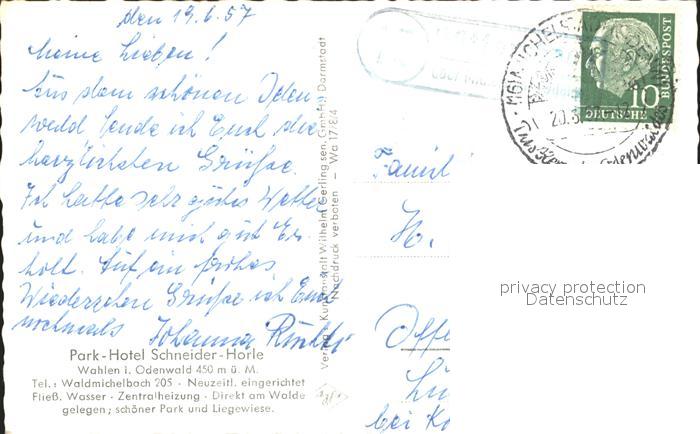 den 19.6.57
Meine Lieben!
Aus dem schönen Oden
wald sende ich Euch die
herzlichsten Grüße.
Ich hatte sehr gutes Wetter
und habe mich gut Er
holt. Auf ein frohes
Wiedersehen Grüße ich Euch
nochmals Johanna
Park-Hotel Schneider-Hörle
Wahlen i. Odenwald 450 m ü. M.
Tel.: Waldmichelbach 205 · Neuzeitl. eingerichtet
Fließ. Wasser · Zentralheizung · Direkt am Walde
gelegen; schöner Park und Liegewiese.
Verlag: Kunstanstalt Wilhelm Gerling sen. GmbH, Darmstadt
Nachdruck verboten — Wa 17/8/4
10
DEUTSCHE
BUNDESPOST
Famil
H.
Offe
bei
privacy protection
Datenschutz